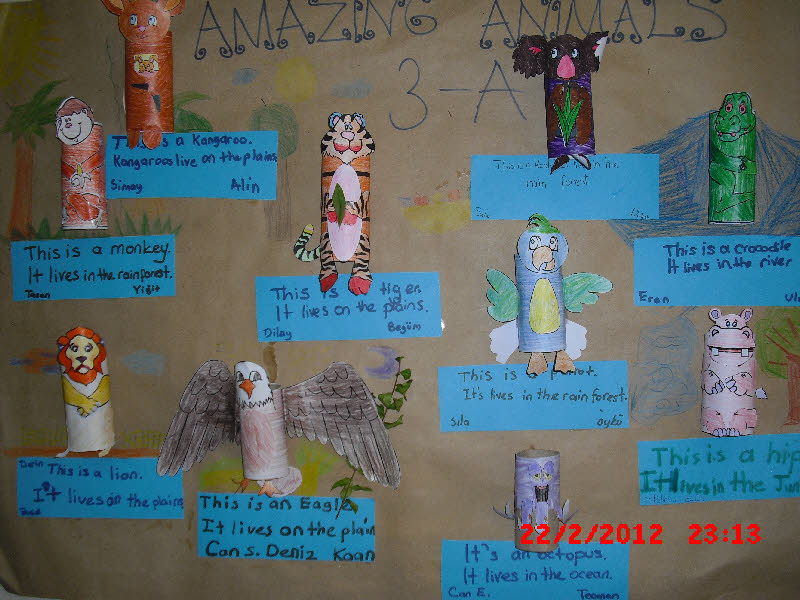 AMAZING ANIMALS
3-A
This is a Kangaroo.
Kangaroos live on the plains
Simay Alin
This is a monkey.
It lives in the rainforest.
Yiğit
This is tiger.
It lives on the plains.
Dilay Begüm
rain forest
This is a crocodile
It lives in the river
Eren
This is
It's lives in the rain forest.
Sıla öykü
This is a lion.
It lives on the plains
This is an Eagle
It lives on the plain
Can S. Deniz Kaan
This is a hip
It lives in the
It's an octopus.
It lives in the ocean.
Can E. Teoman
22/2/2012 23:13